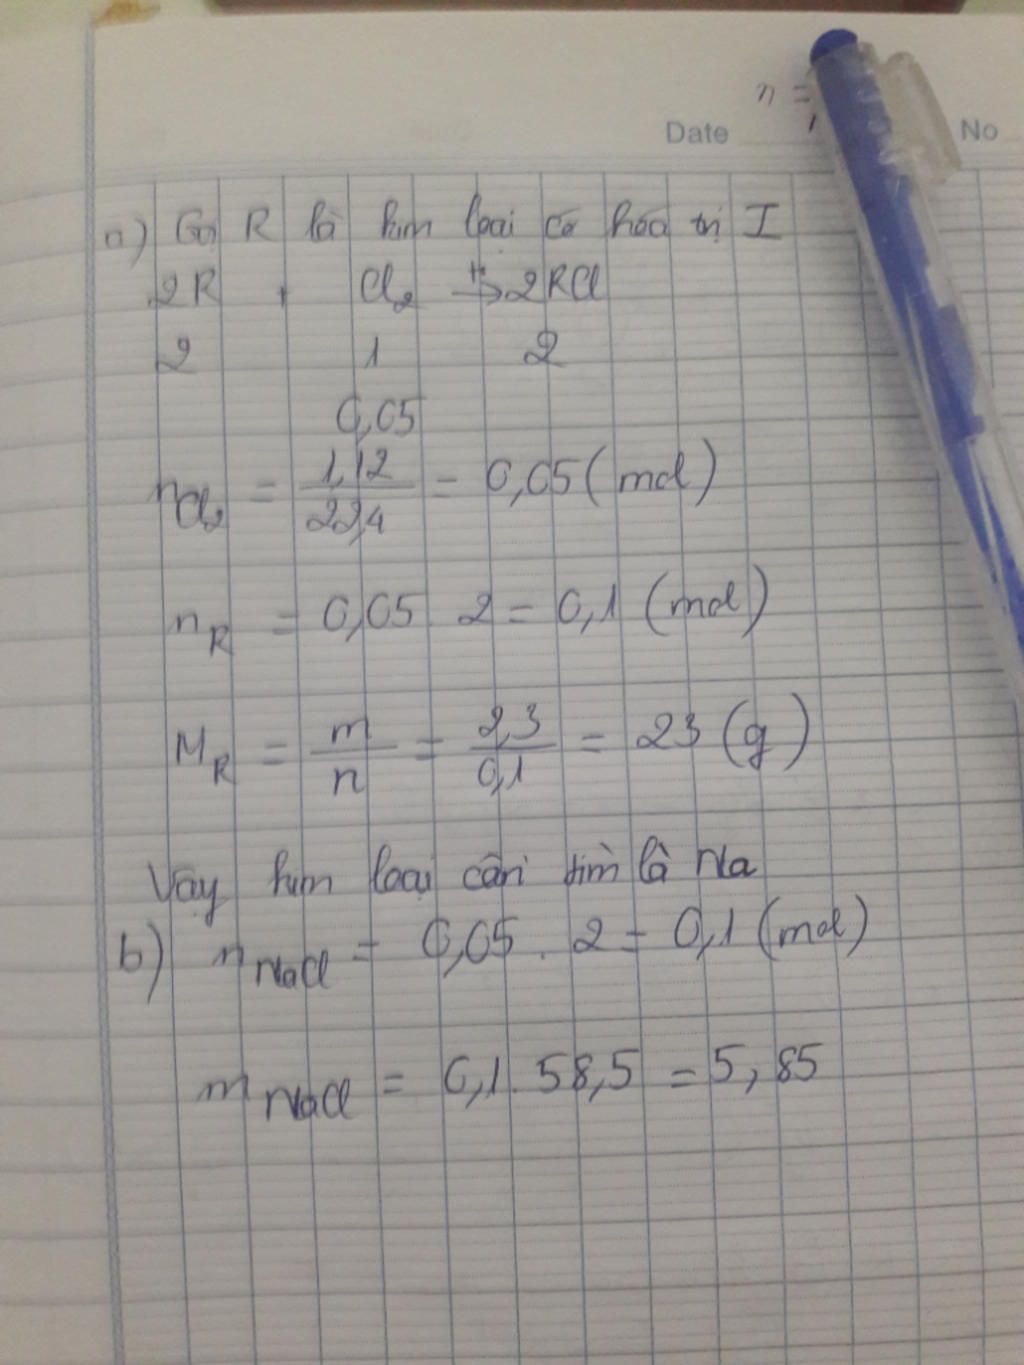 n =
Date No
a) Gọi R là kim loại có hóa trị I
2R + Cl₂ →ᵗ° 2RCl
2 1 2
0,05
nCl₂ = 1,12/22,4 = 0,05 (mol)
nR = 0,05 . 2 = 0,1 (mol)
MR = m/n = 2,3/0,1 = 23 (g)
Vậy kim loại cần tìm là Na
b) nNaCl = 0,05 . 2 = 0,1 (mol)
mNaCl = 0,1 . 58,5 = 5,85